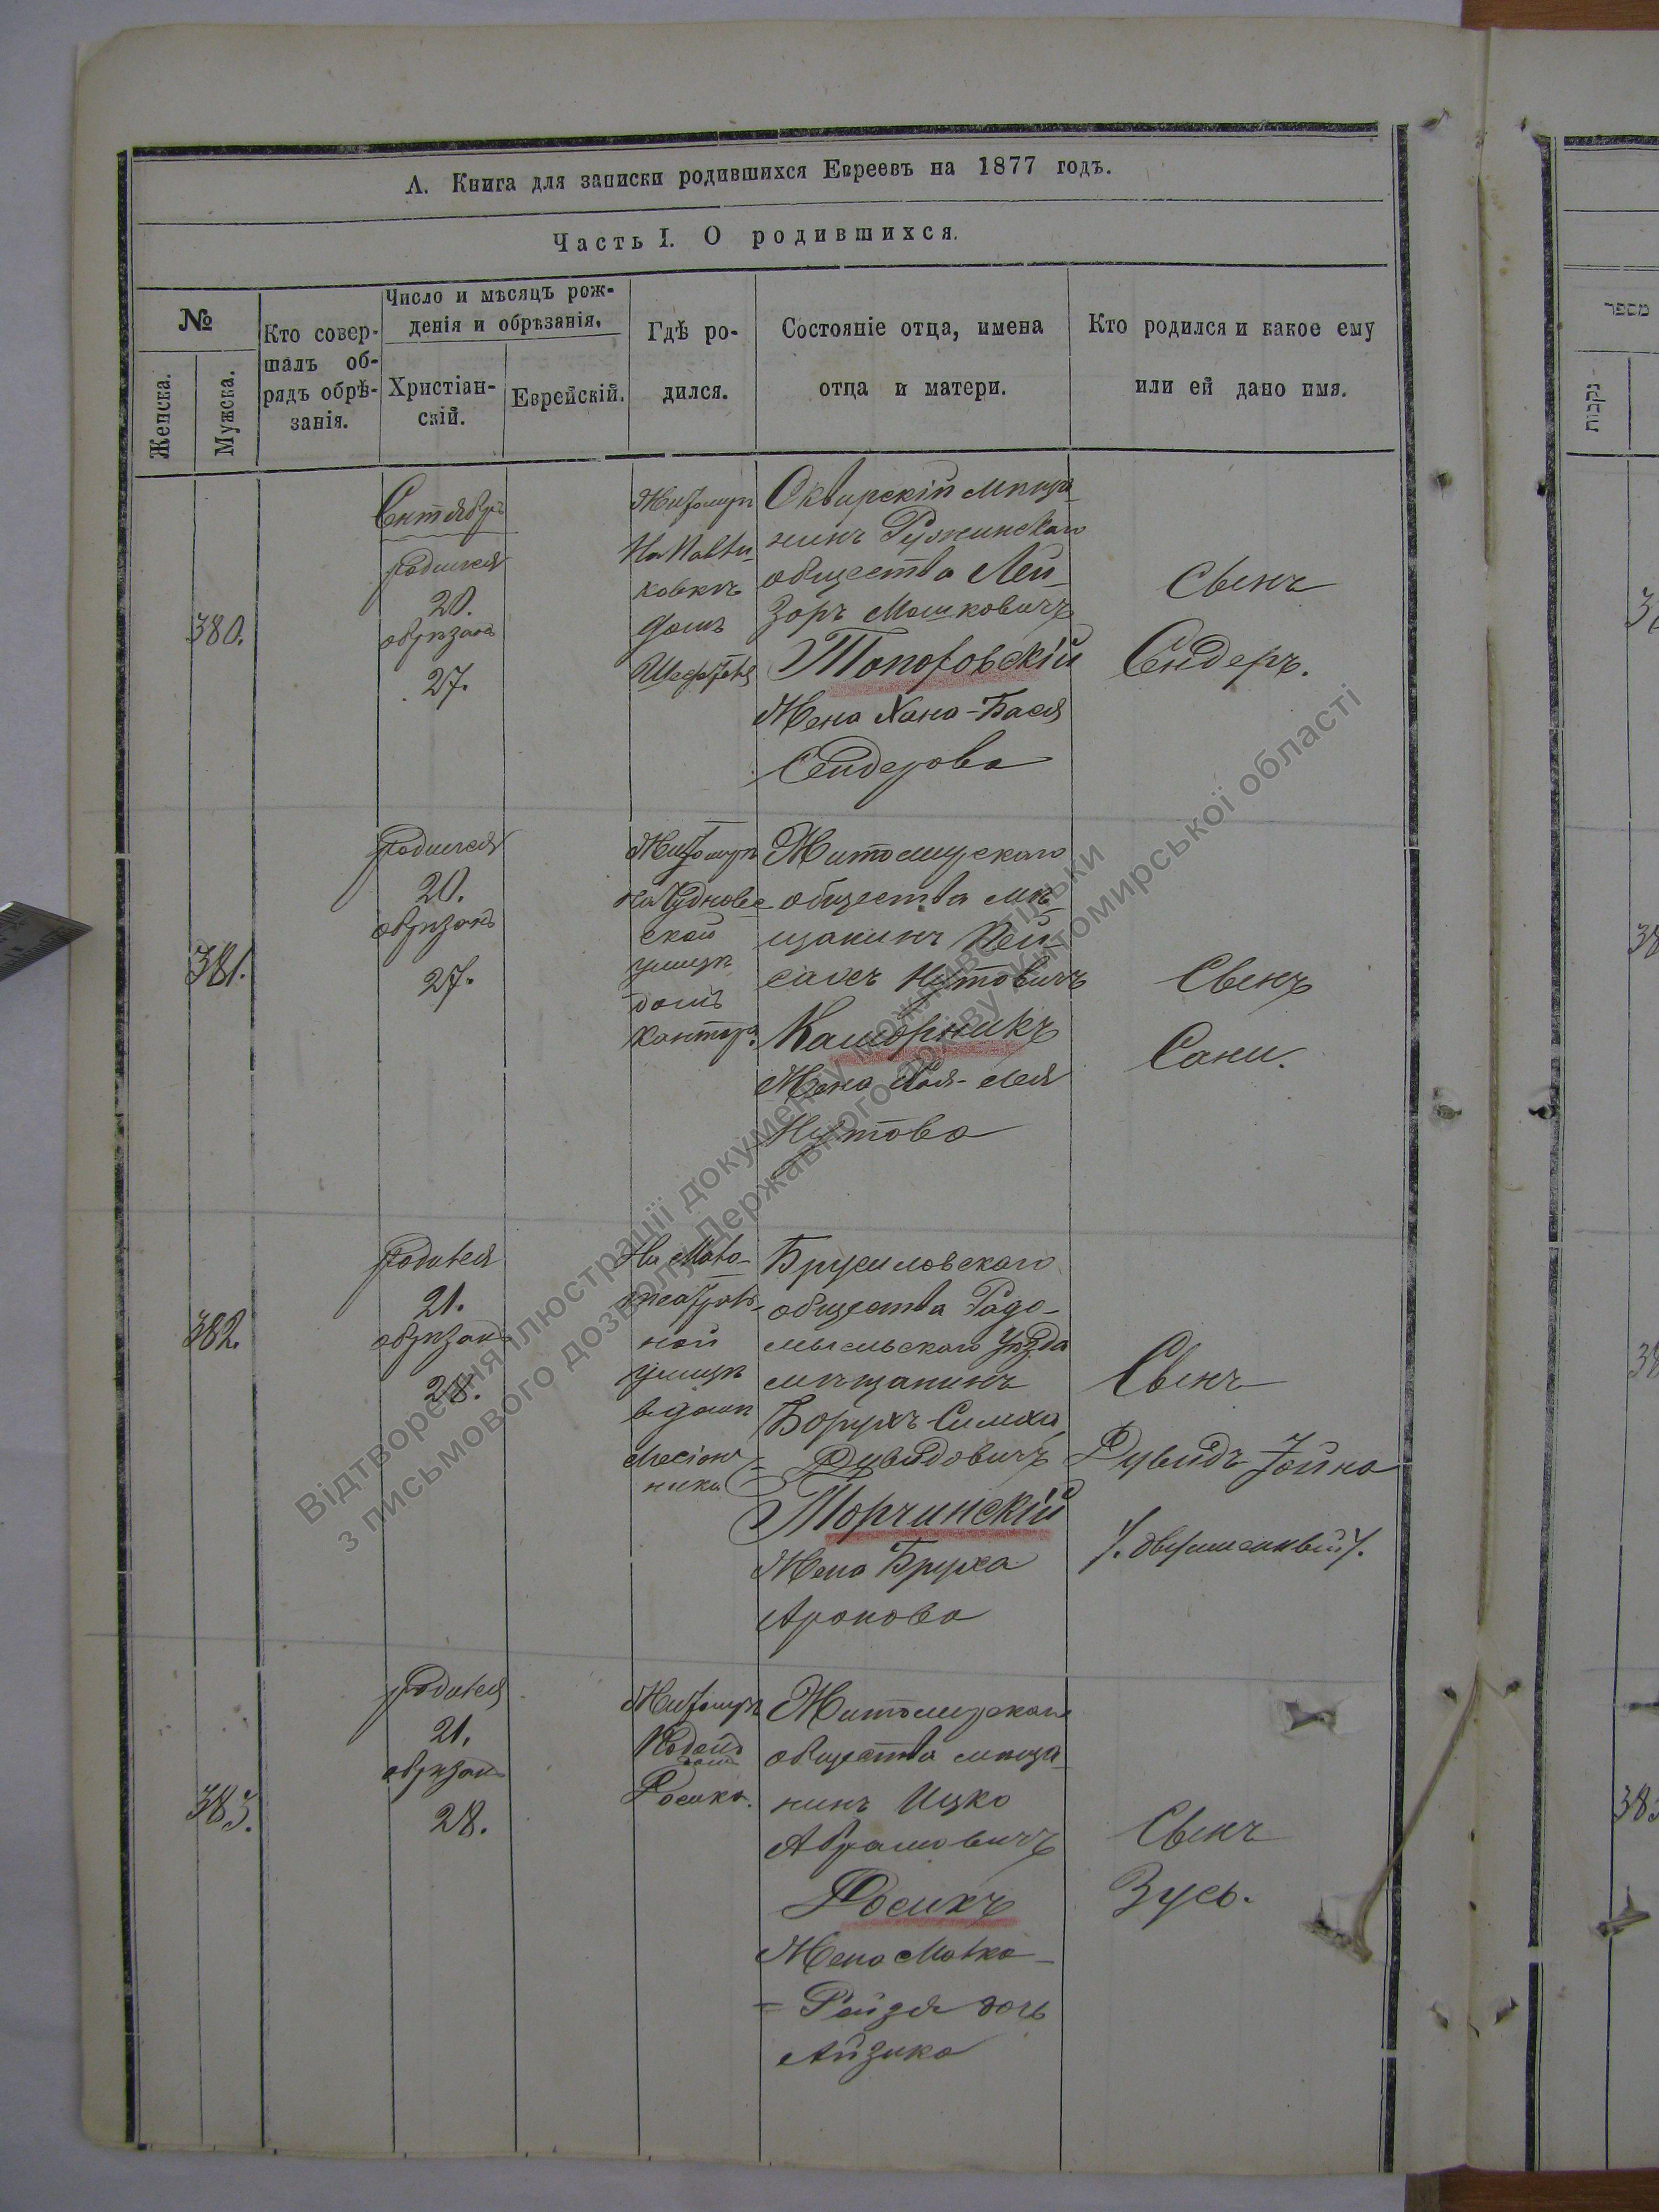 А. Книга для записки родившихся Евреевъ на 1877 годъ.
Часть I. О родившихся.
№
Женска.
Мужска.
Кто совер-
шалъ об-
рядъ обрѣ-
занія.
Число и мѣсяцъ рож-
денія и обрѣзанія.
Христіан-
скій.
Еврейскій.
Гдѣ ро-
дился.
Состояніе отца, имена
отца и матери.
Кто родился и какое ему
или ей дано имя.
380.
Сентябрь
родился
20.
обрѣзанъ
27.
Житомиръ
домъ
Сквирскій мѣща-
нинъ Ружинскаго
общества Лей-
зоръ Мошковичъ
Топоровскій
Жена Хана-Бася
Сендерова
Сынъ
Сендеръ.
381.
родился
20.
обрѣзанъ
27.
Житомиръ
на Чуднов-
ской
улицѣ
домъ
Кантора
Житомирскаго
общества мѣ-
щанинъ Пей-
сахъ Нутовичъ
Каморникъ
Жена Хая-Лея
Нутова
Сынъ
Сани.
382.
родился
21.
обрѣзанъ
28.
На Мало-
ной
улицѣ
в домѣ
Брусиловскаго
общества Радо-
мысльскаго Уѣзда
мѣщанинъ
Борухъ-Симха
= Рувидовичъ
Торчинскій
Жена Бруха
Аронова
Сынъ
Рувидъ-Іойна
/. двуименный /.
383.
родился
21.
обрѣзанъ
28.
Житомиръ
Росика.
Житомирскаго
общества мѣща-
нинъ Ицко
Абрамовичъ
Росикъ
Жена Малка-
= Рейзя дочь
Айзика
Сынъ
Зусь.
מספר
נקבות
38
38
383
Відтворення ілюстрації документу можливо тільки
з письмового дозволу Державного архіву Житомирської області